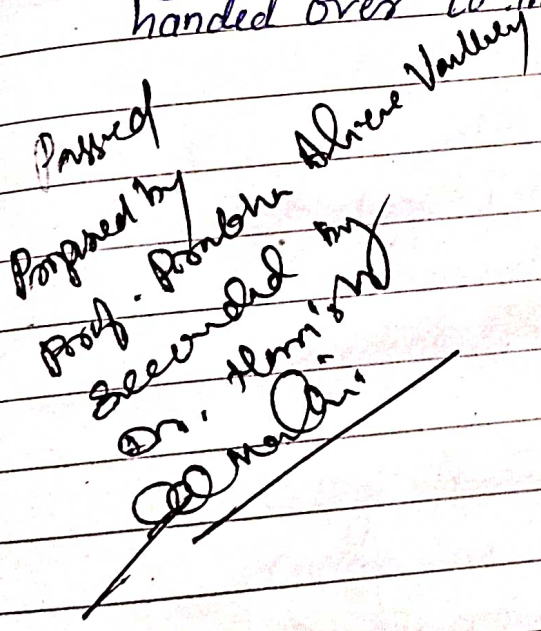 handed over to
Passed
Proposed by
Prof. Prabha
Seconded by
Dr. Harish